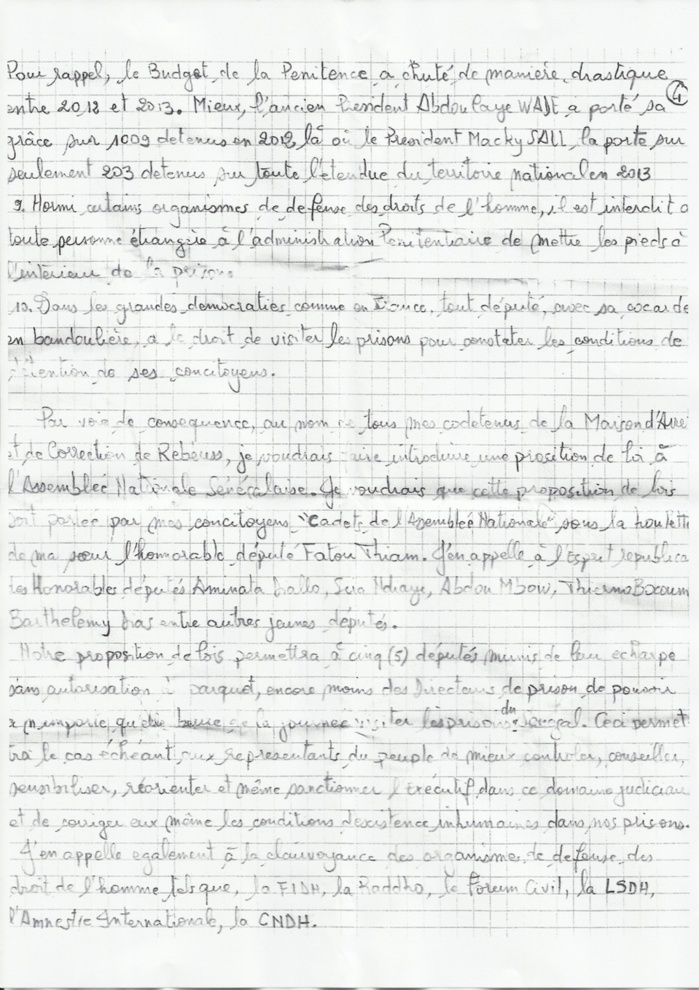 Pour rappel, le Budget de la Penitence a chuté de manière drastique
④
entre 2012 et 2013. Mieux, l'ancien President Abdoulaye WADE a porté sa
grâce sur 1009 detenus en 2012 là où le President Macky SALL la porte sur
seulement 203 detenus sur toute l'etendue du territoire national en 2013
9. Hormi certains organismes de defense des droits de l'homme, il est interdit a
toute personne étrangère à l'administration Penitentiaire de mettre les pieds à
l'intérieur de la prison
10. Dans les grandes democraties comme en France, tout député, avec sa cocarde
en bandoulière, a le droit de visiter les prisons pour constater les conditions de
détention de ses concitoyens.
Par voie de consequence, au nom de tous mes codetenus de la Maison d'Arre
et de Correction de Rebeuss, je voudrais faire introduire une prosition de loi à
l'Assemblée Nationale Sénégalaise. Je voudrais que cette proposition de lois
soit portée par mes concitoyens "Cadets de l'Assemblée Nationale" sous la houlette
de ma sœur l'honorable député Fatou Thiam. J'en appelle à l'Esprit republica
les Honorables députés Aminata Diallo, Seia Ndiaye, Abdou Mbow, Thierno Bocoum
Barthelemy Dias entre autres jeunes députés.
Notre proposition de lois permettra à cinq (5) députés munis de leur écharpe
sans autorisation parquet, encore moins des Directeurs de prison de pouvoir
à n'importe quelle heure de la journée visiter les prisons du Sénégal. Ceci permet
tra le cas échéant aux representants du peuple de mieux controler, conseiller,
sensibiliser, réorienter et même sanctionner l'Exécutif dans ce domaine judiciair
et de corriger eux même les conditions d'existence inhumaines dans nos prisons.
J'en appelle egalement à la clairvoyance des organismes de defense des
droit de l'homme tels que, la FIDH, la Raddho, le Forum Civil, la LSDH,
l'Amnestie Internationale, la CNDH.